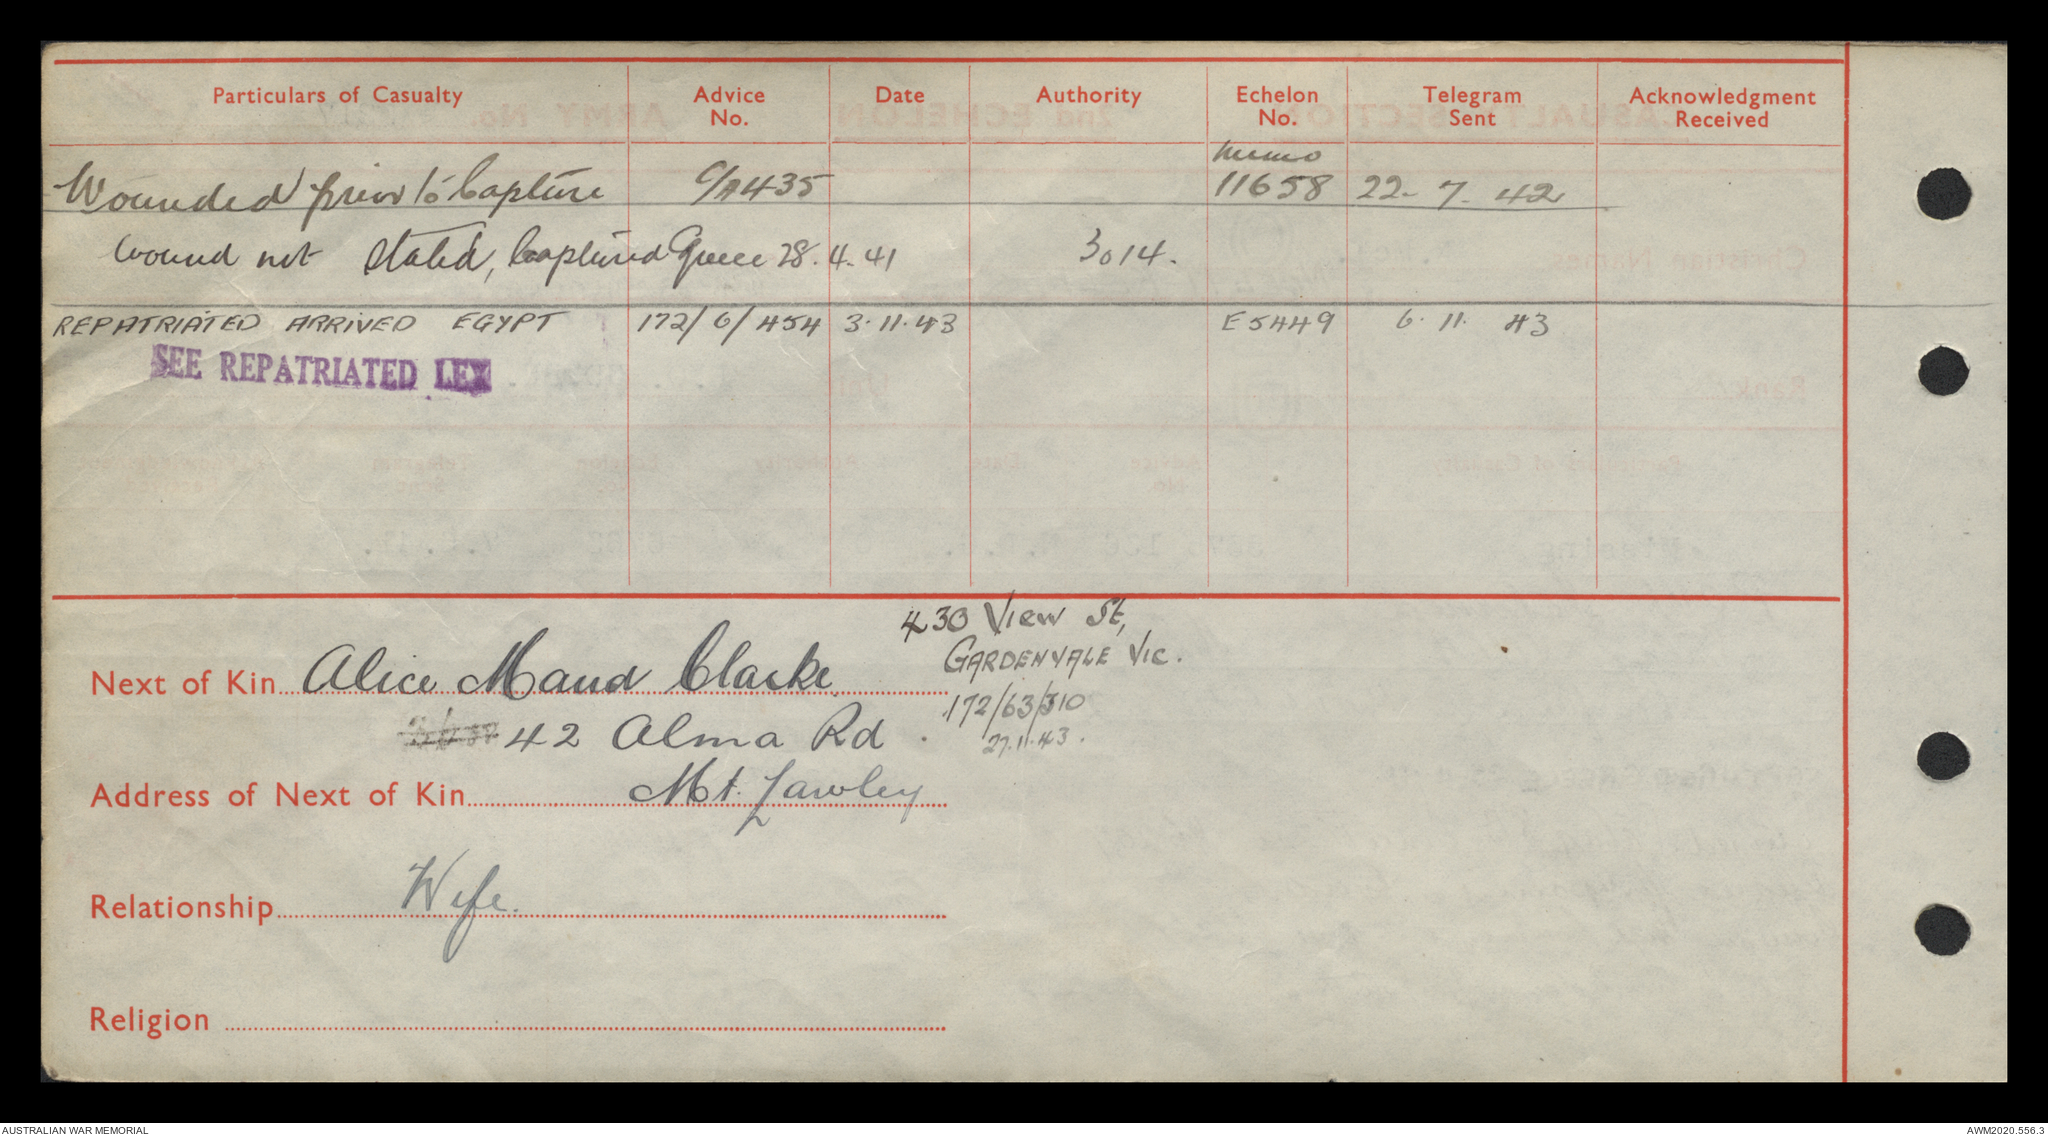 Particulars of Casualty Advice No. Date Authority Echelon No. Telegram Sent Acknowledgment Received
Memo
Wounded prior to Capture C/A435 11658 22. 7. 42
Wound not stated, Captured Greece 28.4.41 3014.
REPATRIATED ARRIVED EGYPT 172/6/454 3.11.43 E5449 6.11.43
SEE REPATRIATED LEX
430 VIEW St,
GARDENVALE VIC.
Next of Kin Alice Maud Clarke
172/63/310
27.11.43.
42 Alma Rd.
Address of Next of Kin Mt. Lawley
Relationship Wife.
Religion
AUSTRALIAN WAR MEMORIAL AWM2020.556.3